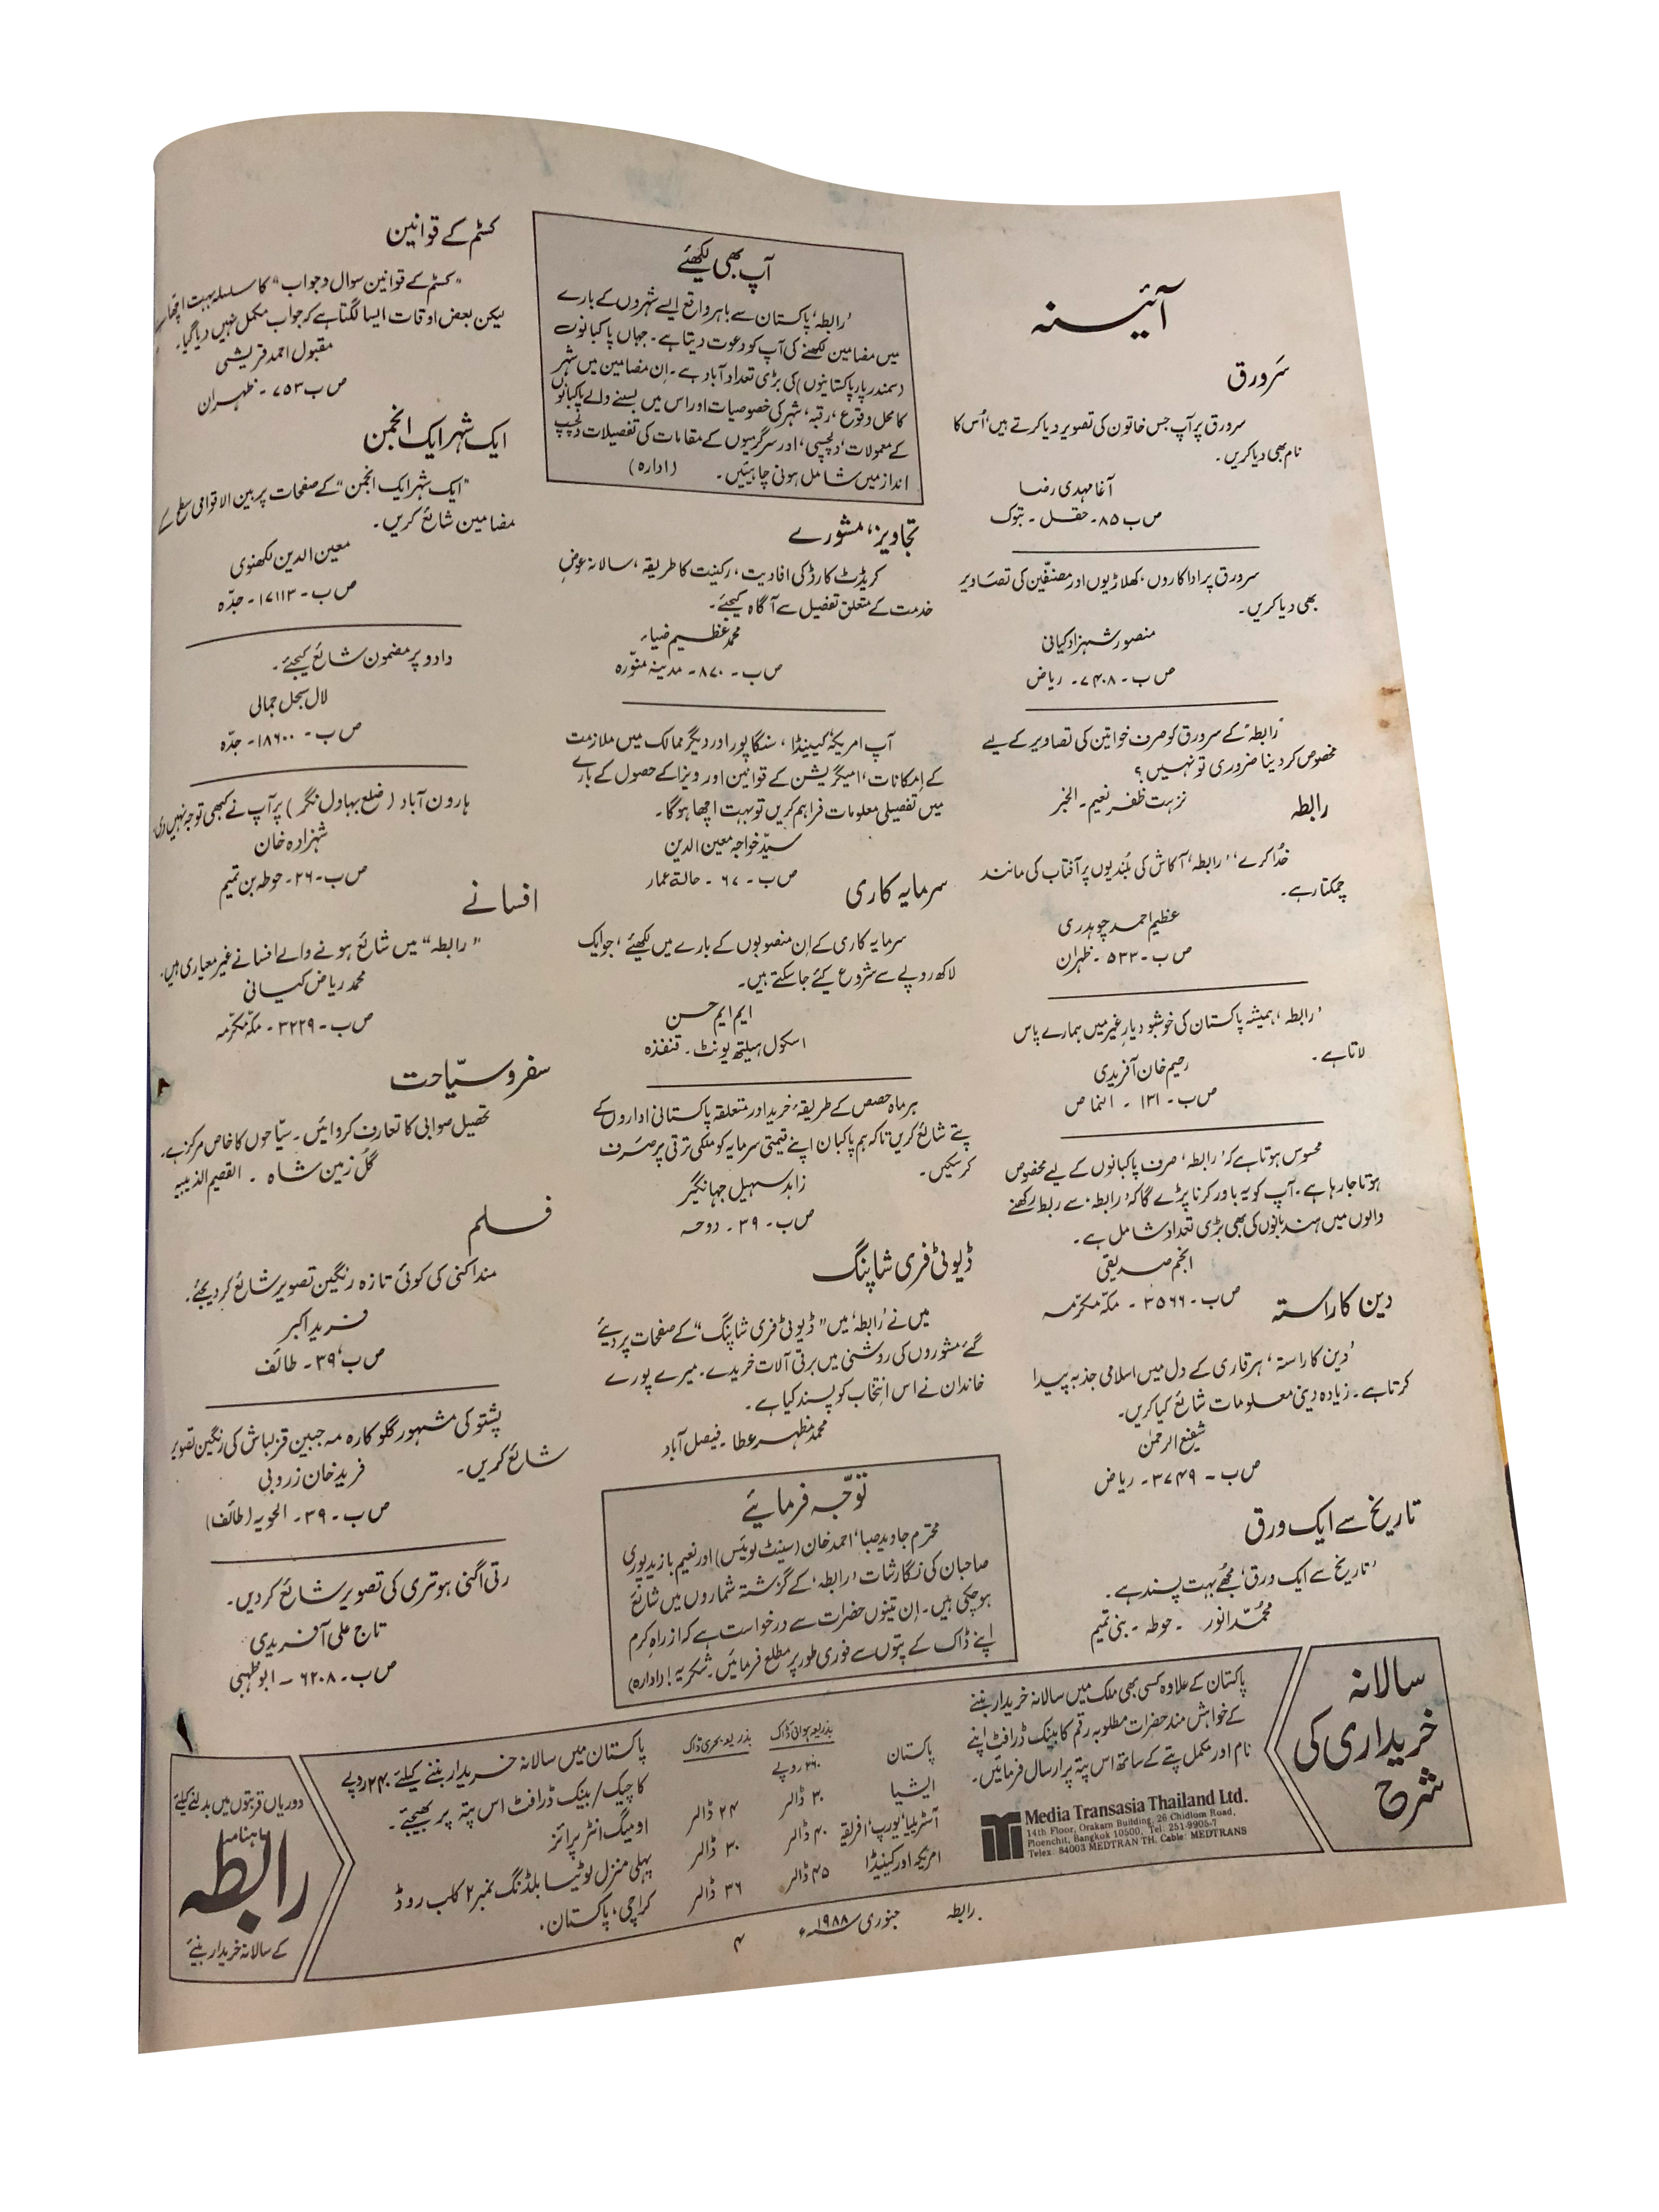 آئینہ
سَرورق
سرورق پر آپ جس خاتون کی تصویر دیا کرتے ہیں، اُس کا
نام بھی دیا کریں۔
آغا مہدی رضا
ص ب ۸۵۔ حقل ۔ تبوک
سرورق پر اداکاروں، کھلاڑیوں اور مصنفّین کی تصاَویر
بھی دیا کریں۔
منصور شہزاد کیانی
ص ب ۔ ۷۴۰۸۔ ریاض
’رابطہ‘ کے سرورق کو صرف خواتین کی تصاویر کے لیے
مخصوص کر دینا ضروری تو نہیں؟
نزہت ظفر نعیم ۔ الخبر
رابطہ
خُدا کرے، ’رابطہ‘ آکاش کی بُلندیوں پر آفتاب کی مانند
چمکتا رہے۔
عظیم احمد چوہدری
ص ب ۔ ۵۳۲ ۔ ظہران
’رابطہ‘ ہمیشہ پاکستان کی خوشبو دیارِ غیر میں ہمارے پاس
لاتا ہے۔
رحیم خان آفریدی
ص ب ۔ ۱۳۱ ۔ النماص
محسوس ہوتا ہے کہ ’رابطہ‘ صرف پاکبانوں کے لیے مخصوص
ہوتا جا رہا ہے۔ آپ کو یہ باور کرنا پڑے گا کہ ’رابطہ‘ سے ربط رکھنے
والوں میں ہند بانوں کی بھی بڑی تعداد شامل ہے۔
انجم صدیقی
ص ب ۔ ۳۵۶۶ ۔ مکہّ مکرّمہ
دین کا راستہ
’دین کا راستہ‘ ہر قاری کے دل میں اسلامی جذبہ پیدا
کرتا ہے۔ زیادہ دینی معلومات شائع کیا کریں۔
شفیع الرحمٰن
ص ب ۔ ۳۷۴۹۔ ریاض
تاریخ سے ایک ورق
’تاریخ سے ایک ورق‘ مُجھے بہت پسند ہے۔
محمّد انور ۔ حوطہ ۔ بنی تمیم
آپ بھی لکھئے
’رابطہ‘ پاکستان سے باہر واقع ایسے شہروں کے بارے
میں مضامین لکھنے کی آپ کو دعوت دیتا ہے۔ جہاں پاکبانوں
(سمندر پار پاکستانیوں) کی بڑی تعداد آباد ہے۔ اِن مضامین میں شہر
کا محل وقوع، رقبہ، شہر کی خصوصیات اور اس میں بسنے والے پاکبانوں
کے معمولات، دلچسپی، اور سرگرمیوں کے مقامات کی تفصیلات دلچسپ
انداز میں شامل ہونی چاہیئیں۔ (ادارہ)
تجاویز، مشورے
کریڈٹ کارڈ کی افادیت، رکنیت کا طریقہ، سالانہ عوضِ
خدمت کے متعلق تفصیل سے آگاہ کیجئے۔
محمد عظیم ضیاء
ص ب ۔ ۸۷۰ ۔ مدینہ منوّرہ
آپ امریکہ، کینیڈا، سنگاپور اور دیگر ممالک میں ملازمت
کے امکانات، امیگریشن کے قوانین اور ویزا کے حصول کے بارے
میں تفصیلی معلومات فراہم کریں تو بہت اچھا ہو گا۔
سیّد خواجہ معین الدین
ص ب ۔ ۶۷ ۔ حالۃ عمار
سرمایہ کاری
سرمایہ کاری کے اِن منصوبوں کے بارے میں لکھئے، جو ایک
لاکھ روپے سے شروع کیے جا سکتے ہیں۔
ایم ایم حسن
اسکول ہیلتھ یونٹ ۔ قنفذہ
ہر ماہ حصص کے طریقۂ خرید اور متعلقہ پاکستانی اداروں کے
پتے شائع کریں تاکہ ہم پاکبان اپنے قیمتی سرمایہ کو ملکی ترقی پر صرَف
کر سکیں۔
زاہد سہیل جہانگیر
ص ب ۔ ۳۹ ۔ دوحہ
ڈیوٹی فری شاپنگ
میں نے ’رابطہ‘ میں ”ڈیوٹی فری شاپنگ“ کے صفحات پر دیئے
گئے مشوروں کی روشنی میں برقی آلات خریدے۔ میرے پورے
خاندان نے اس انتخاب کو پسند کیا ہے۔
محمد مظہر عطا ۔ فیصل آباد
توّجہ فرمایئے
محترم جاوید صبا، احمد خان (سینٹ لوئیس) اور نعیم بازید پوری
صاحبان کی نگارشات ’رابطہ‘ کے گزشتہ شماروں میں شائع
ہو چکی ہیں۔ اِن تینوں حضرات سے درخواست ہے کہ از راہِ کرم
اپنے ڈاک کے پتوں سے فوری طور پر مطلع فرمائیں۔ شکریہ! (ادارہ)
کسٹم کے قوانین
”کسٹم کے قوانین سوال و جواب“ کا سلسلہ بہت اچھا ہے
لیکن بعض اوقات ایسا لگتا ہے کہ جواب مکمل نہیں دیا گیا۔
مقبول احمد قریشی
ص ب ۷۵۳ ۔ ظہران
ایک شہر ایک انجمن
”ایک شہر ایک انجمن“ کے صفحات پر بین الاقوامی سطح کے
مضامین شائع کریں۔
معین الدین لکھنوی
ص ب ۔ ۱۷۱۱۳ ۔ جدّہ
دادو پر مضمون شائع کیجئے۔
لال سجل جمالی
ص ب ۔ ۱۸۶۰۰ ۔ جدّہ
ہارون آباد (ضلع بہاول نگر) پر آپ نے کبھی توجہ نہیں دی۔
شہزادہ خان
ص ب ۔ ۲۶ ۔ حوطہ بن تمیم
افسانے
”رابطہ“ میں شائع ہونے والے افسانے غیر معیاری ہیں۔
محمد ریاض کیانی
ص ب ۔ ۳۲۲۹ ۔ مکّہ مکرّمہ
سفر و سیّاحت
تحصیل صوابی کا تعارف کروائیں۔ سیّاحوں کا خاص مرکز ہے۔
گُل زمین شاہ ۔ القصیم الذیبیہ
فلم
منداکنی کی کوئی تازہ رنگین تصویر شائع کر دیجئے۔
فرید اکبر
ص ب، ۳۹ ۔ طائف
پشتو کی مشہور گلوکارہ مہ جبین قزلباش کی رنگین تصویر
شائع کریں۔
فرید خان زروبی
ص ب ۔ ۳۹ ۔ الحویہ (طائف)
رتی اگنی ہوتری کی تصویر شائع کر دیں۔
تاج علی آفریدی
ص ب ۔ ۶۲۰۸ ۔ ابوظہبی
سالانہ
خریداری کی
شرح
پاکستان کے علاوہ کسی بھی ملک میں سالانہ خریدار بننے
کے خواہش مند حضرات مطلوبہ رقم کا بینک ڈرافٹ اپنے
نام اور مکمل پتے کے ساتھ اس پتہ پر ارسال فرمائیں۔
Media Transasia Thailand Ltd.
14th Floor, Orakarn Building, 26 Chidlom Road,
Ploenchit, Bangkok 10500, Tel: 251-9905-7
Telex: 84003 MEDTRAN TH. Cable: MEDTRANS
بذریعہ ہوائی ڈاک بذریعہ بحری ڈاک
پاکستان ۳۶۰ روپے
ایشیا ۳۰ ڈالر ۲۴ ڈالر
آسٹریلیا، یورپ، افریقہ ۴۰ ڈالر ۳۰ ڈالر
امریکہ اور کینیڈا ۴۵ ڈالر ۳۶ ڈالر
پاکستان میں سالانہ خریدار بننے کیلئے ۲۴۰ روپے
کا چیک/بینک ڈرافٹ اس پتہ پر بھیجئے۔
اومیگا انٹرپرائز
پہلی منزل لوٹیا بلڈنگ نمبر ۲ کلب روڈ
کراچی، پاکستان۔
دوریاں قربتوں میں بدلنے کیلئے
ماہنامہ
رابطہ
کے سالانہ خریدار بنئے
رابطہ جنوری ۱۹۸۸ء ۴